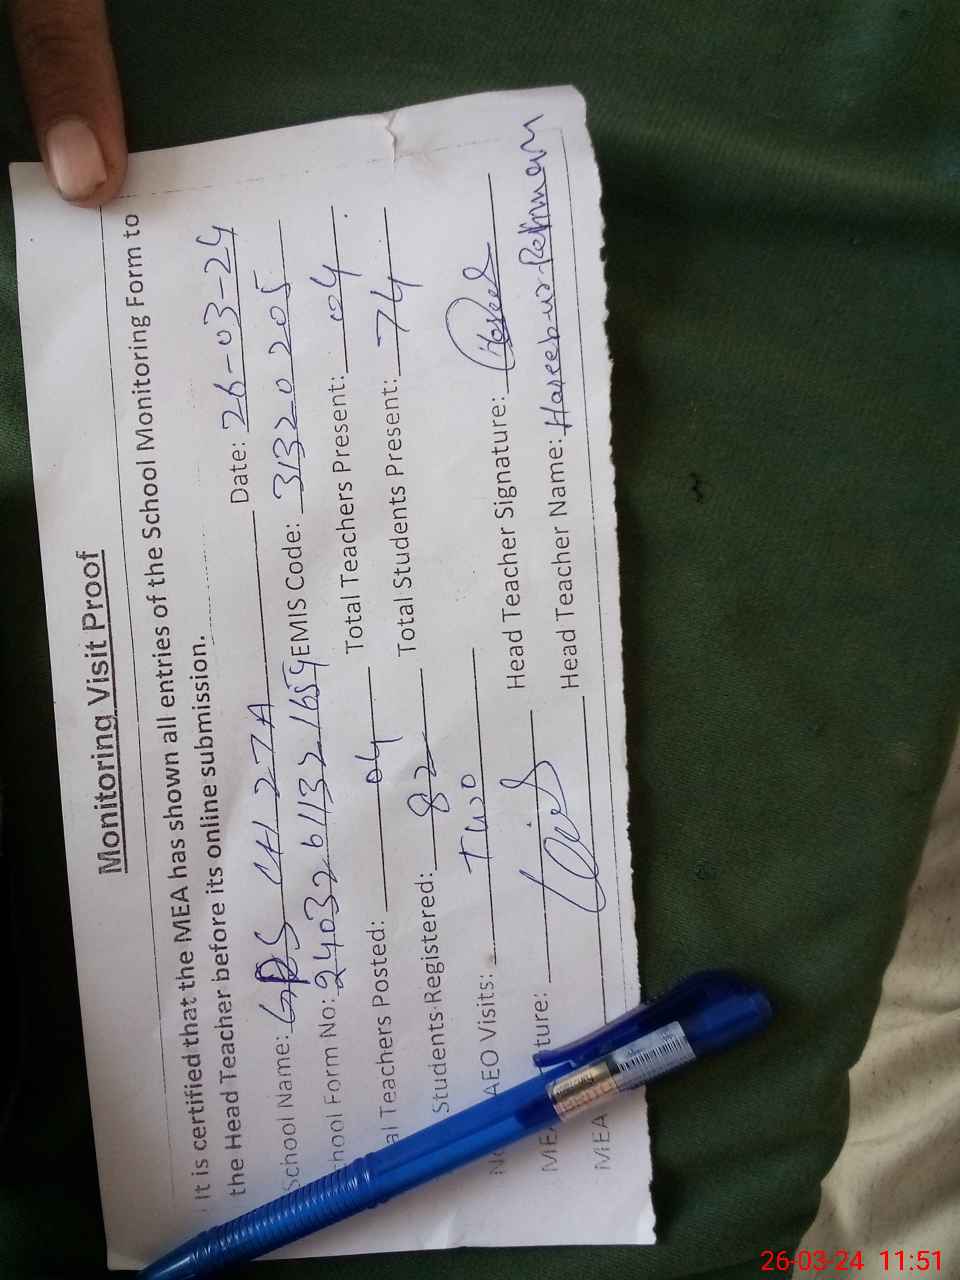 Monitoring Visit Proof
It is certified that the MEA has shown all entries of the School Monitoring Form to
the Head Teacher before its online submission.
Date: 26-03-24
School Name: GPS CH 27A
EMIS Code: 31320205
chool Form No: 2403261321659
Total Teachers Present: 04
al Teachers Posted: 04
Total Students Present: 74
Students Registered: 82
AEO Visits: Two
Head Teacher Signature:
MEA ture:
Head Teacher Name: Haseeb-ur-Rehman
MEA
26-03-24 11:51